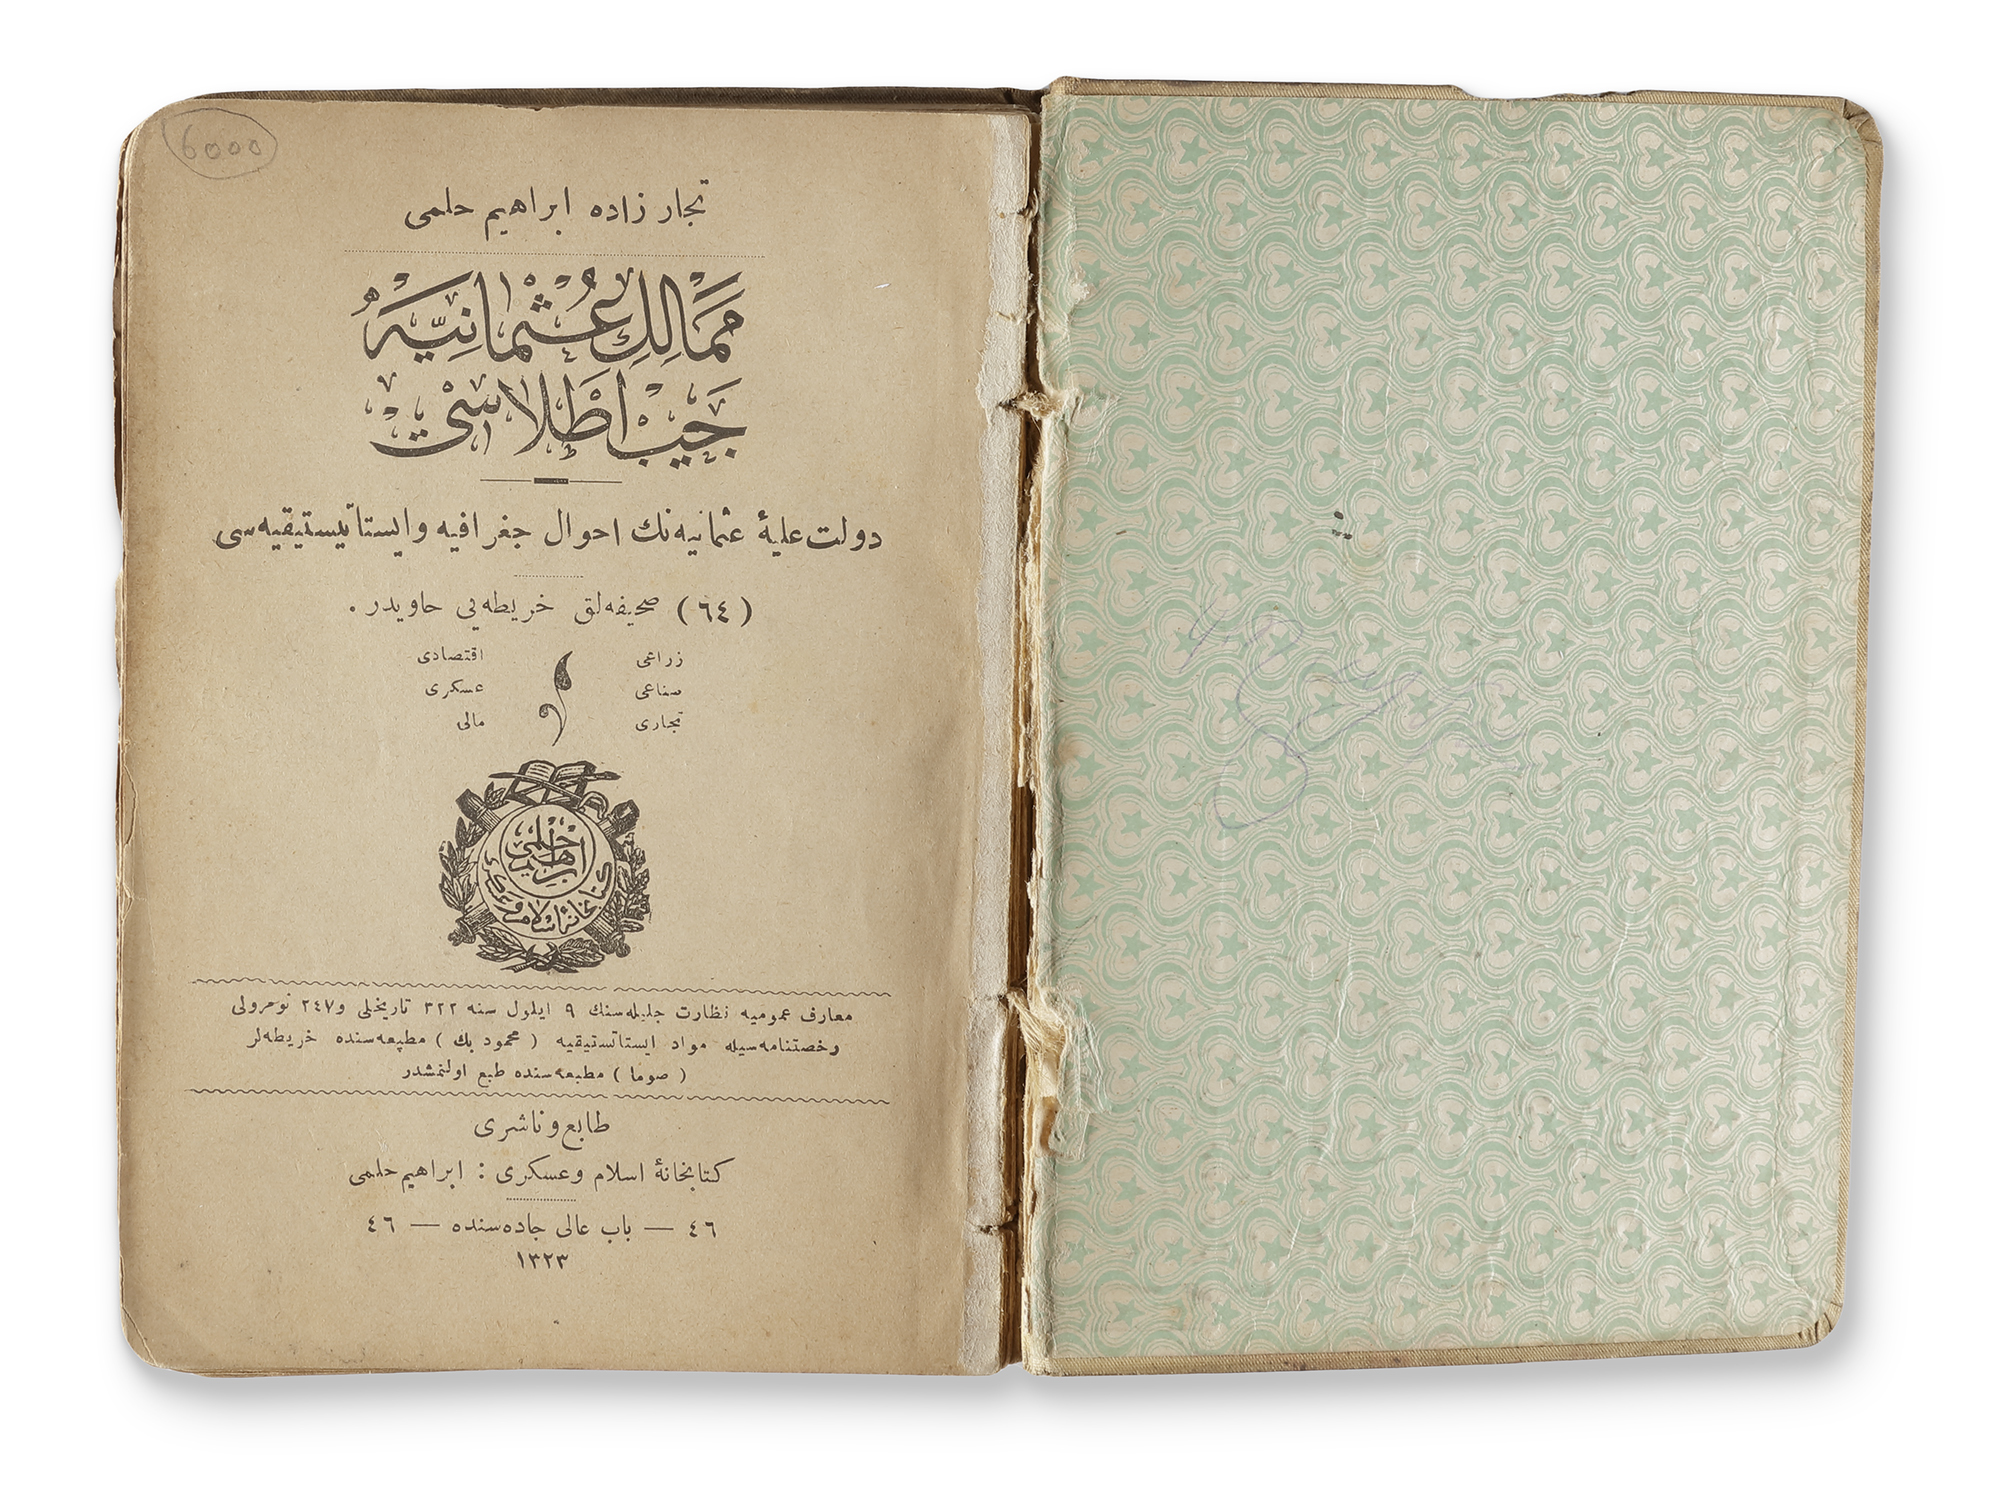 6000
تجار زاده ابراهيم حلمى
مَمَالِكِ عُثْمَانِيَّه
جَيْب اَطْلَاسى
دولت عليۀ عثمانيه نك احوال جغرافيه وايستاتيستيقيه سى
(٦٤) صحيفه لق خريطه يي حاويدر .
زراعى اقتصادى
صناعى عسكرى
تجارى مالى
ابراهيم حلمى
كتابخانۀ اسلام وعسكرى
معارف عموميه نظارت جليله سنك ٩ ايلول سنه ٣٢٢ تاريخلى و٢٤٧ نومرولى
رخصتنامه سيله مواد ايستاتستيقيه (محمود بك) مطبعه سنده خريطه لر
(صوما) مطبعه سنده طبع اولنمشدر
طابع وناشرى
كتابخانۀ اسلام وعسكرى : ابراهيم حلمى
٤٦ — باب عالى جاده سنده — ٤٦
١٣٢٣